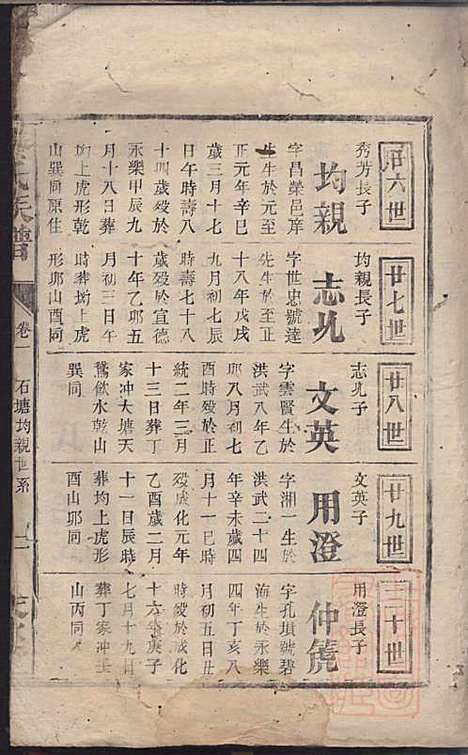 廿六世
秀芳長子
均親
字昌榮邑庠
生生於元至
正元年辛巳
歲三月十七
日午時壽八
十四歲殁於
永樂甲辰九
月十八日葬
均上虎形乾
山巽同原住
廿七世
均親長子
志𠀌
字世忠號達
先生於至正
十八年戊戌
九月初七日
時壽七十八
歲殁於宣德
十年乙卯五
月初三日午
時葬均上虎
形卯山酉同
廿八世
志𠀌子
文英
字雲賢生於
洪武八年乙
卯八月初七
酉時殁於正
統二年三月
十三日葬丁
家冲大塘天
鵞飲水乾山
巽同
廿九世
文英子
用澄
字湘一生於
洪武二十四
年辛未歲四
月十一巳時
殁成化元年
乙酉歲二月
十一日辰時
葬均上虎形
酉山卯同
三十世
用澄長子
仲篪
字孔塤號碧
海生於永樂
四年丁亥八
月初五日丑
時殁於成化
十六年庚子
七月十九日
葬丁家冲壬
山丙同
氏族譜
卷一
石塘均親世系